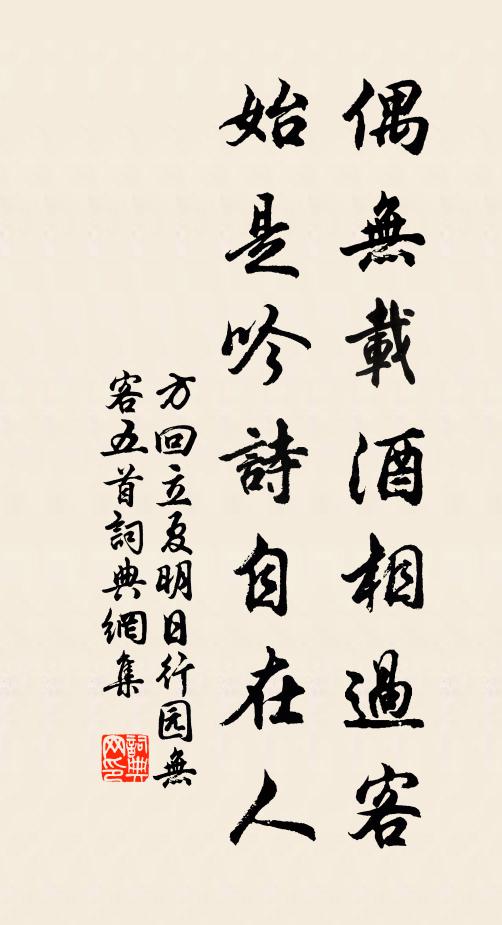 偶無載酒相過客
始是吟詩自在人
方回立夏明日行园無
客五首詞典網集
詞典網印